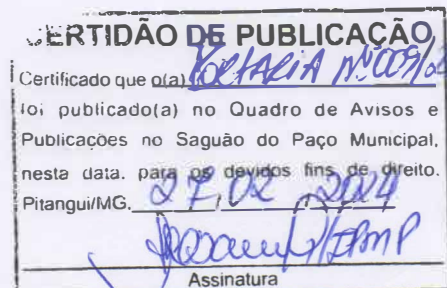 CERTIDÃO DE PUBLICAÇÃO
Certificado que o(a) PORTARIA Nº 009/2
foi publicado(a) no Quadro de Avisos e
Publicações no Saguão do Paço Municipal,
nesta data, para os devidos fins de direito.
Pitangui/MG, 27 / 02 / 2024
Assinatura